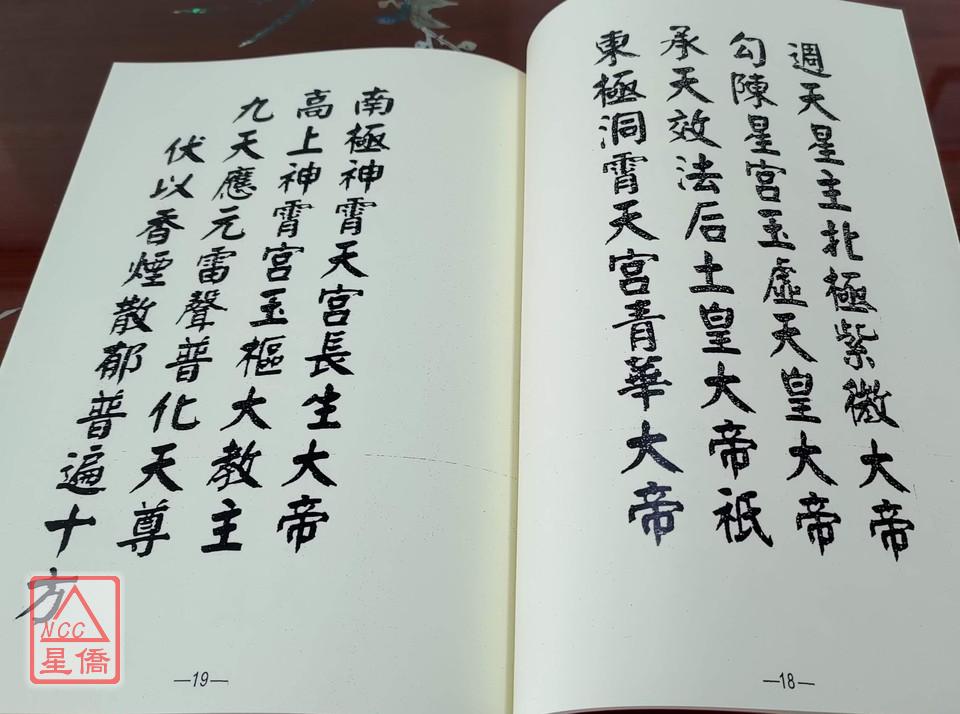 週天星主北極紫微大帝
勾陳星宮玉虛天皇大帝
承天效法后土皇大帝祇
東極洞霄天宮青華大帝
—18—
南極神霄天宮長生大帝
高上神霄宮玉樞大教主
九天應元雷聲普化天尊
伏以香煙散郁普遍十方
—19—
NCC
星僑